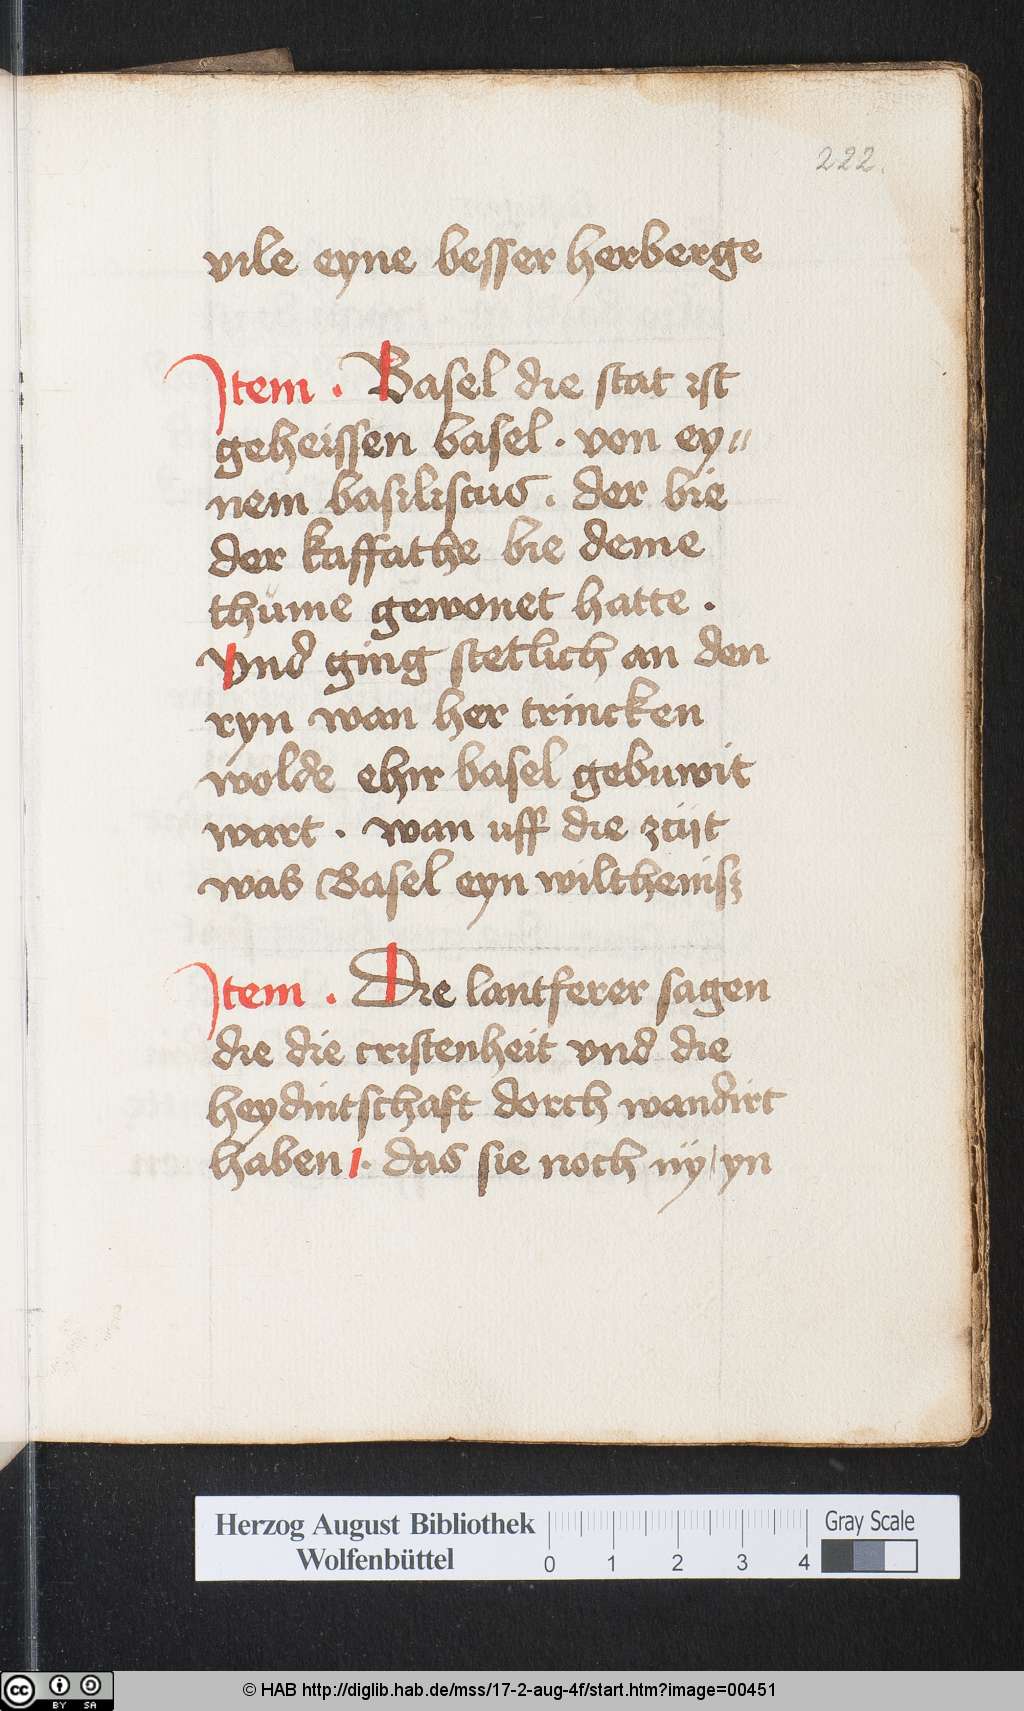 222.
vile eyne besser herberge
Item . Basel die stat ist
geheissen basel . von ey〃
nem basiliscus . der bie
der kaffathe bie deme
thüme gewonet hatte .
Vnd ging stetlich an den
ryn wan her trincken
wolde ehir basel gebuwit
wart . wan uff die zcijt
was Basel eyn wiltheniß
Item . Die lantferer sagen
die die cristenheit vnd die
heydintschaft dorch wandirt
haben . das sie noch ny yn
Herzog August Bibliothek
Wolfenbüttel
0 1 2 3 4
Gray Scale
cc BY SA
© HAB http://diglib.hab.de/mss/17-2-aug-4f/start.htm?image=00451